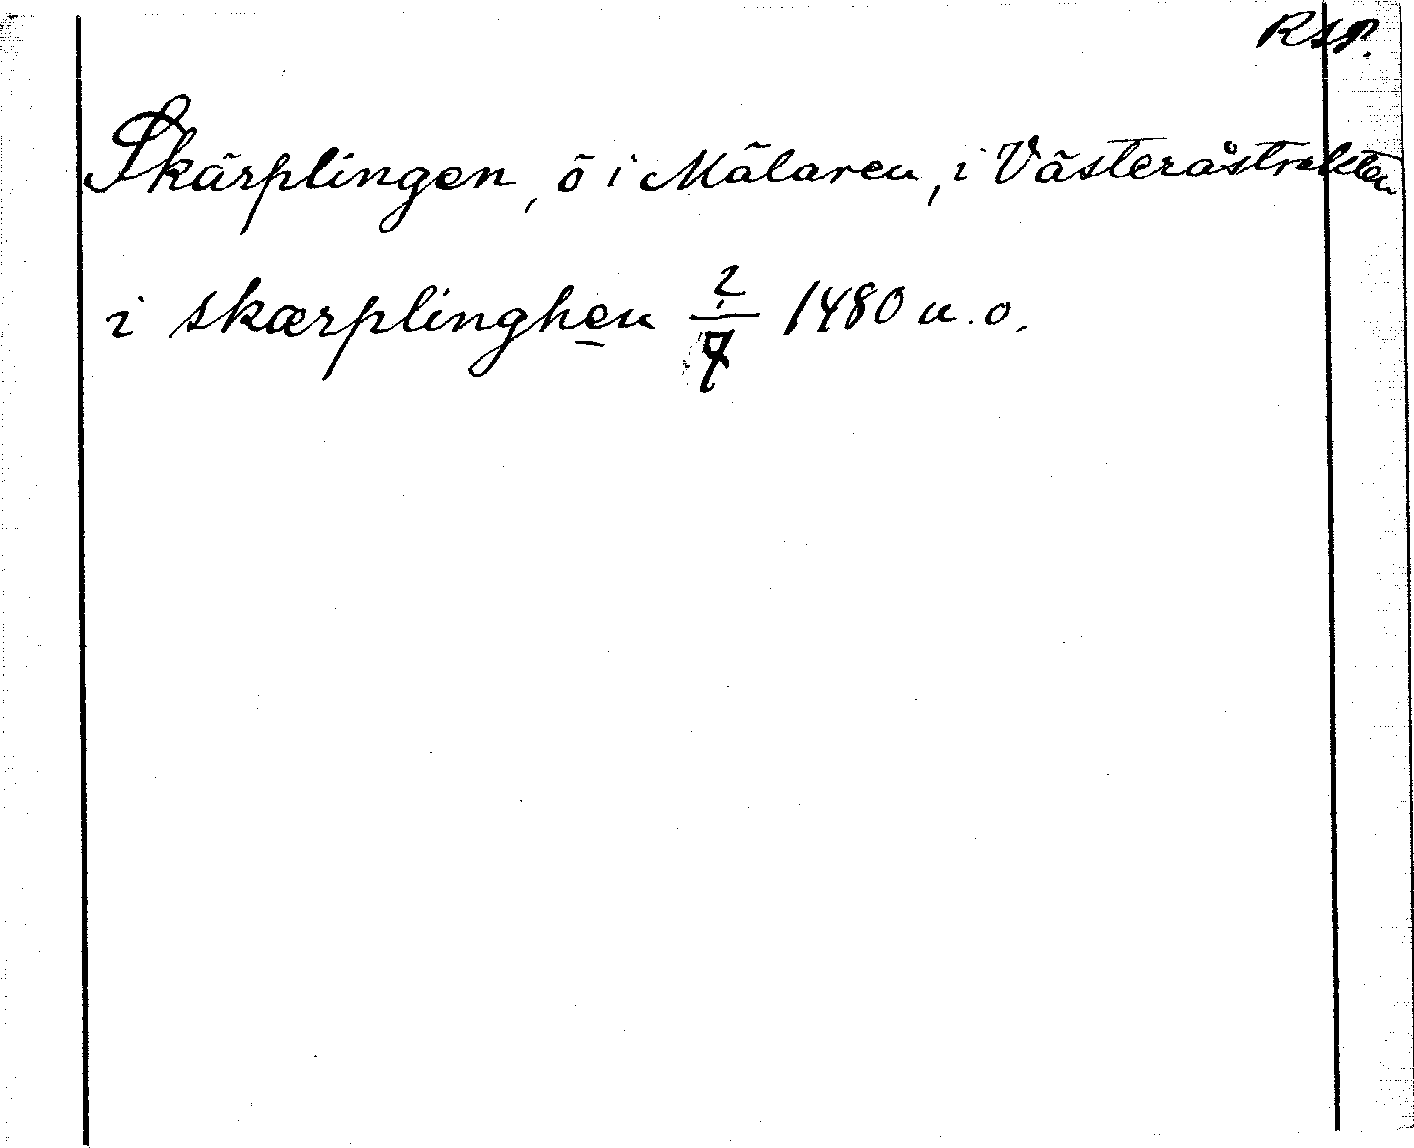 RSP.
Skärplingen, ö i Mälaren, i Västeråstrakten
i skærplinghen 2/7 1480 u.o.